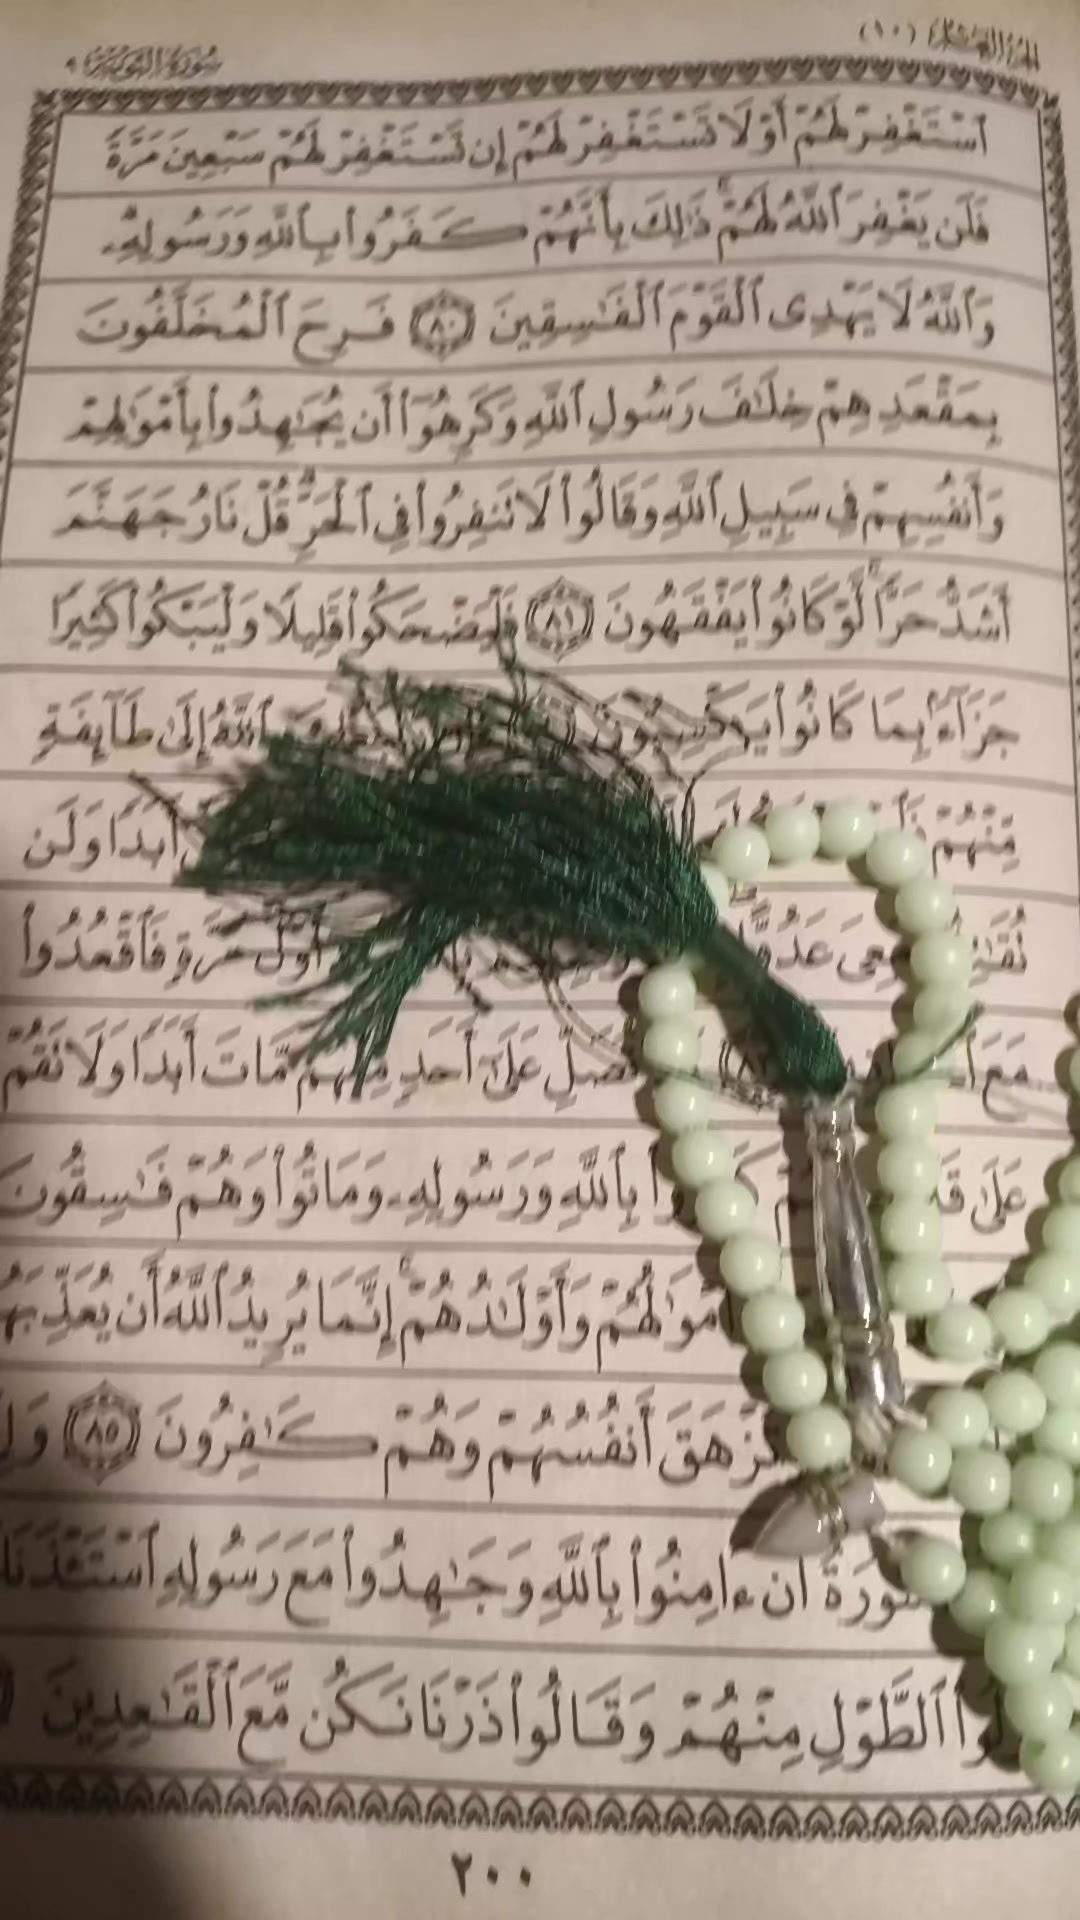 الجزء العاشر (١٠)
سورة التوبة ٩
ٱسۡتَغۡفِرۡ لَهُمۡ أَوۡ لَا تَسۡتَغۡفِرۡ لَهُمۡ إِن تَسۡتَغۡفِرۡ لَهُمۡ سَبۡعِينَ مَرَّةً
فَلَن يَغۡفِرَ ٱللَّهُ لَهُمۡۚ ذَٰلِكَ بِأَنَّهُمۡ كَفَرُواْ بِٱللَّهِ وَرَسُولِهِۦۗ
وَٱللَّهُ لَا يَهۡدِى ٱلۡقَوۡمَ ٱلۡفَٰسِقِينَ ٨٠ فَرِحَ ٱلۡمُخَلَّفُونَ
بِمَقۡعَدِهِمۡ خِلَٰفَ رَسُولِ ٱللَّهِ وَكَرِهُوٓاْ أَن يُجَٰهِدُواْ بِأَمۡوَٰلِهِمۡ
وَأَنفُسِهِمۡ فِى سَبِيلِ ٱللَّهِ وَقَالُواْ لَا تَنفِرُواْ فِى ٱلۡحَرِّۗ قُلۡ نَارُ جَهَنَّمَ
أَشَدُّ حَرّٗاۚ لَّوۡ كَانُواْ يَفۡقَهُونَ ٨١ فَلۡيَضۡحَكُواْ قَلِيلٗا وَلۡيَبۡكُواْ كَثِيرٗا
جَزَآءَۢ بِمَا كَانُواْ يَكۡسِبُونَ ٱللَّهُ إِلَىٰ طَآئِفَةٖ
مِّنۡهُمۡ أَبَدٗا وَلَن
عَدُوًّا أَوَّلَ مَرَّةٖ فَٱقۡعُدُواْ
مَعَ تُصَلِّ عَلَىٰٓ أَحَدٖ مِّنۡهُم مَّاتَ أَبَدٗا وَلَا تَقُمۡ
عَلَىٰ بِٱللَّهِ وَرَسُولِهِۦ وَمَاتُواْ وَهُمۡ فَٰسِقُونَ
أَمۡوَٰلُهُمۡ وَأَوۡلَٰدُهُمۡۚ إِنَّمَا يُرِيدُ ٱللَّهُ أَن يُعَذِّبَهُم
وَتَزۡهَقَ أَنفُسُهُمۡ وَهُمۡ كَٰفِرُونَ ٨٥
سُورَةٌ أَنۡ ءَامِنُواْ بِٱللَّهِ وَجَٰهِدُواْ مَعَ رَسُولِهِ ٱسۡتَـٔۡذَنَكَ
ٱلطَّوۡلِ مِنۡهُمۡ وَقَالُواْ ذَرۡنَا نَكُن مَّعَ ٱلۡقَٰعِدِينَ
٢٠٠